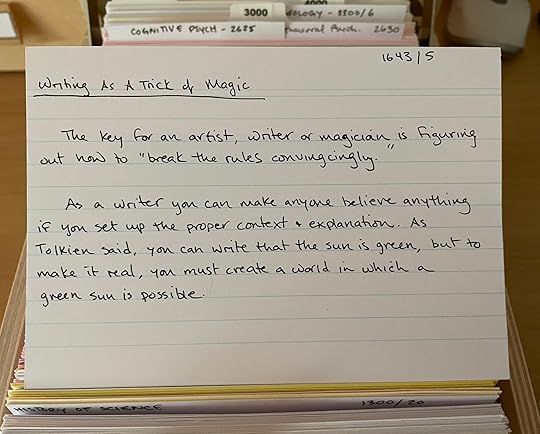 4000
3000
EOLOGY - 3300/6
COGNITIVE PSYCH - 2625
2630
1643/5
Writing As A Trick of Magic
The key for an artist, writer or magician is figuring
out how to "break the rules convincingly."
As a writer you can make anyone believe anything
if you set up the proper context + explanation. As
Tolkien said, you can write that the sun is green, but to
make it real, you must create a world in which a
green sun is possible.
HISTORY OF SCIENCE
1300/20